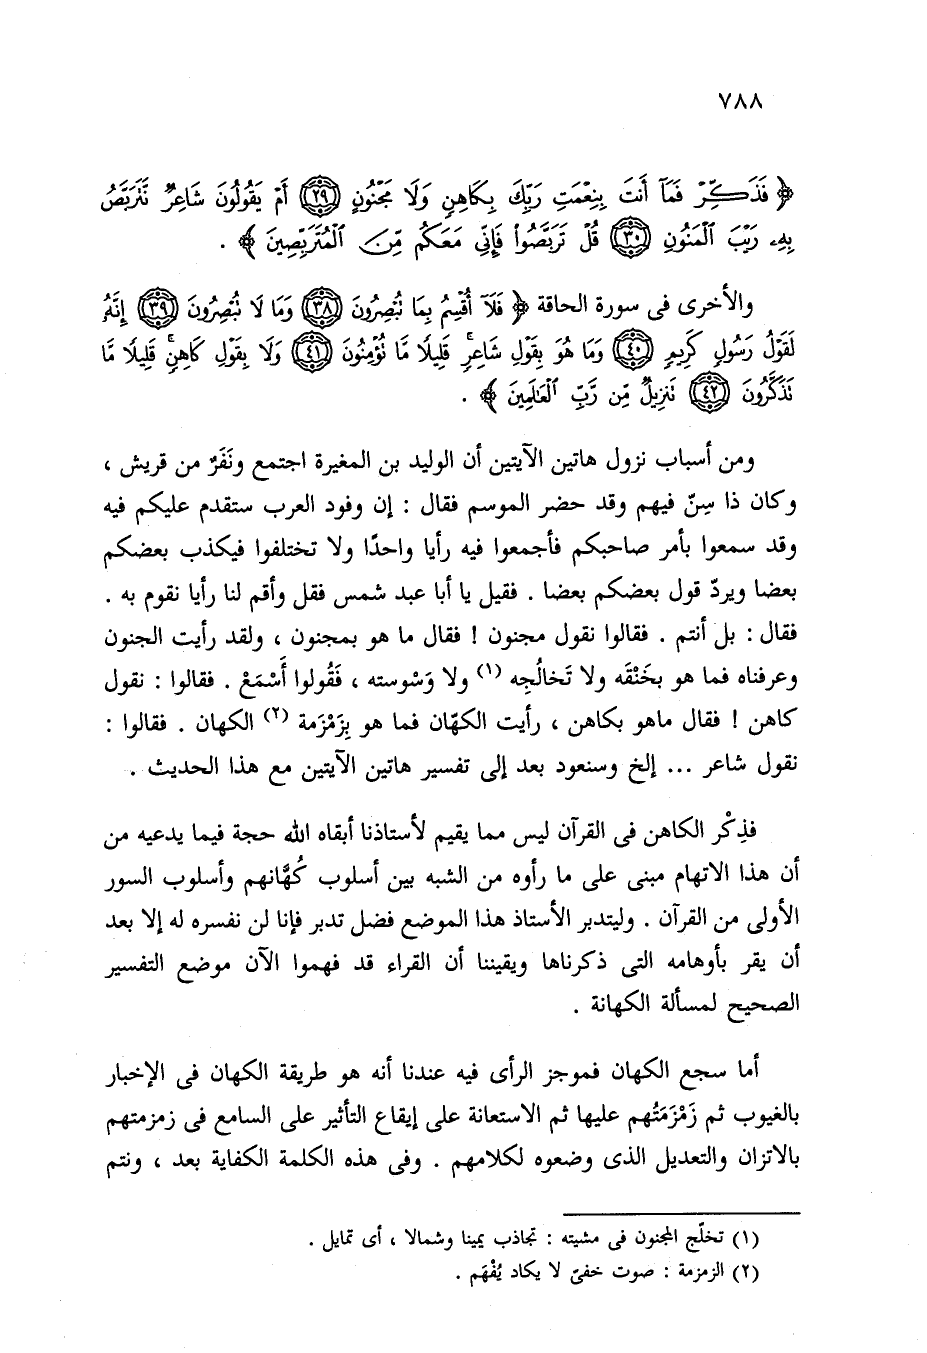 ٧٨٨
﴿ فَذَكِّرْ فَمَآ أَنتَ بِنِعْمَتِ رَبِّكَ بِكَاهِنٍ وَلَا مَجْنُونٍ ٢٩ أَمْ يَقُولُونَ شَاعِرٌ نَّتَرَبَّصُ
بِهِۦ رَيْبَ ٱلْمَنُونِ ٣٠ قُلْ تَرَبَّصُوا۟ فَإِنِّى مَعَكُم مِّنَ ٱلْمُتَرَبِّصِينَ ﴾ .
والأخرى فى سورة الحاقة ﴿ فَلَآ أُقْسِمُ بِمَا تُبْصِرُونَ ٣٨ وَمَا لَا تُبْصِرُونَ ٣٩ إِنَّهُۥ
لَقَوْلُ رَسُولٍ كَرِيمٍ ٤٠ وَمَا هُوَ بِقَوْلِ شَاعِرٍ ۚ قَلِيلًا مَّا تُؤْمِنُونَ ٤١ وَلَا بِقَوْلِ كَاهِنٍ ۚ قَلِيلًا مَّا
تَذَكَّرُونَ ٤٢ تَنزِيلٌ مِّن رَّبِّ ٱلْعَـٰلَمِينَ ﴾ .
ومن أسباب نزول هاتين الآيتين أن الوليد بن المغيرة اجتمع ونَفَرٌ من قريش ،
وكان ذا سِنّ فيهم وقد حضر الموسم فقال : إن وفود العرب ستقدم عليكم فيه
وقد سمعوا بأمر صاحبكم فأجمعوا فيه رأيا واحدًا ولا تختلفوا فيكذب بعضكم
بعضا ويردّ قول بعضكم بعضا . فقيل يا أبا عبد شمس فقل وأقم لنا رأيا نقوم به .
فقال : بل أنتم . فقالوا نقول مجنون ! فقال ما هو بمجنون ، ولقد رأيت الجنون
وعرفناه فما هو بخَنْقَه ولا تَخالُجِه (١) ولا وَسْوسته ، فَقُولوا أَسْمَعْ . فقالوا : نقول
كاهن ! فقال ماهو بكاهن ، رأيت الكهّان فما هو بِزَمْزَمة (٢) الكهان . فقالوا :
نقول شاعر ... إلخ وسنعود بعد إلى تفسير هاتين الآيتين مع هذا الحديث .
فذِكْر الكاهن فى القرآن ليس مما يقيم لأستاذنا أبقاه الله حجة فيما يدعيه من
أن هذا الاتهام مبنى على ما رأوه من الشبه بين أسلوب كُهَّانهم وأسلوب السور
الأولى من القرآن . وليتدبر الأستاذ هذا الموضع فضل تدبر فإنا لن نفسره له إلا بعد
أن يقر بأوهامه التى ذكرناها ويقيننا أن القراء قد فهموا الآن موضع التفسير
الصحيح لمسألة الكهانة .
أما سجع الكهان فموجز الرأى فيه عندنا أنه هو طريقة الكهان فى الإخبار
بالغيوب ثم زَمْزَمَتُهم عليها ثم الاستعانة على إيقاع التأثير على السامع فى زمزمتهم
بالاتزان والتعديل الذى وضعوه لكلامهم . وفى هذه الكلمة الكفاية بعد ، ونتم
(١) تخلّج المجنون فى مشيته : تجاذب يمينا وشمالا ، أى تمايل .
(٢) الزمزمة : صوت خفىّ لا يكاد يُفْهَم .